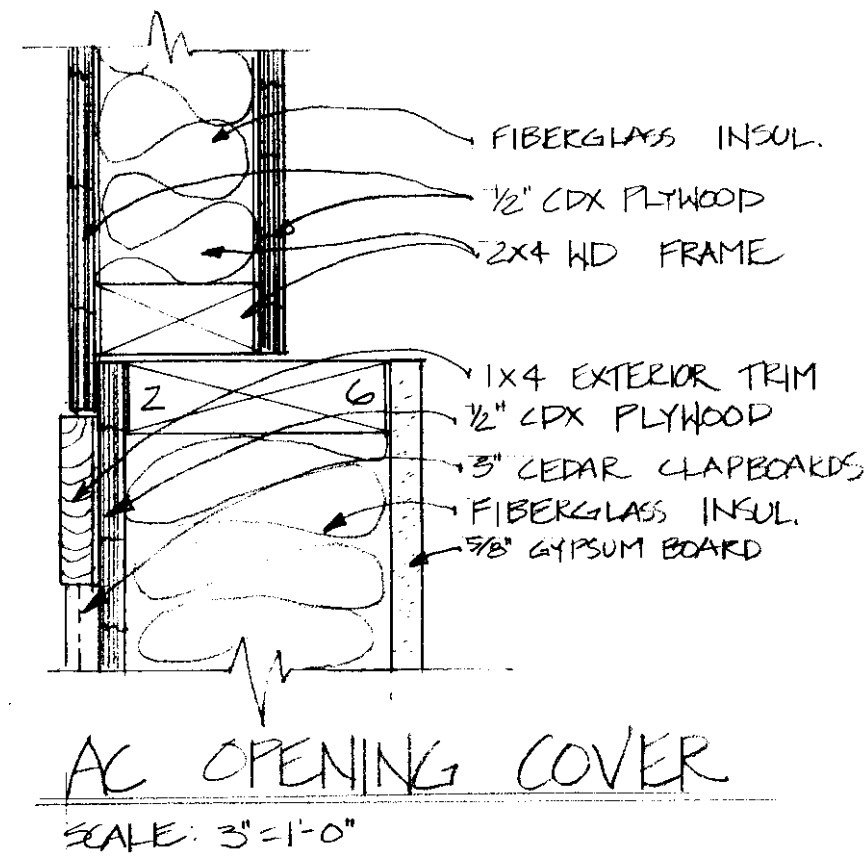 FIBERGLASS INSUL.
1/2" CDX PLYWOOD
2X4 WD FRAME
1X4 EXTERIOR TRIM
2 6
1/2" CDX PLYWOOD
3" CEDAR CLAPBOARDS
FIBERGLASS INSUL.
5/8" GYPSUM BOARD
AC OPENING COVER
SCALE: 3"=1'-0"